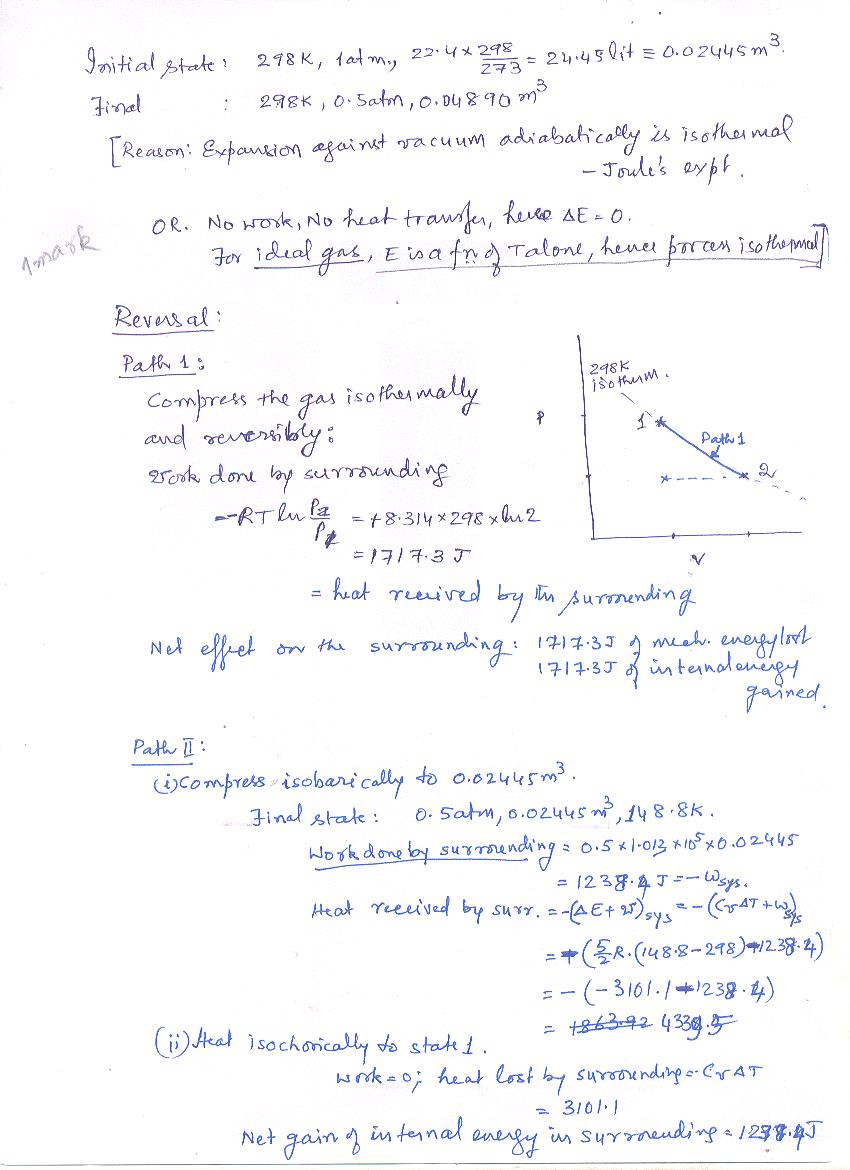 Initial state: 298K, 1atm., 22.4 x 298/273 = 24.45 lit ≡ 0.02445 m³.
Final : 298K, 0.5atm, 0.04890 m³
[Reason: Expansion against vacuum adiabatically is isothermal
- Joule's expt.
OR. No work, No heat transfer, hence ΔE = 0.
1 mark
For ideal gas, E is a fn of T alone, hence process isothermal]
Reversal:
Path 1:
Compress the gas isothermally
and reversibly:
Work done by surrounding
-RT ln P2/P1 = +8.314 x 298 x ln 2
= 1717.3 J
= heat received by the surrounding
298K
isotherm.
P
1
Path 1
2
V
Net effect on the surrounding: 1717.3J of mech. energy lost
1717.3J of internal energy
gained.
Path II:
(i) Compress isobarically to 0.02445 m³.
Final state: 0.5atm, 0.02445 m³, 148.8K.
Work done by surrounding = 0.5 x 1.013 x 10⁵ x 0.02445
= 1238.4 J = -Wsys.
Heat received by surr. = -(ΔE + W)sys = -(CvΔT + W)sys
= -(5/2 R.(148.8-298) - 1238.4)
= - (-3101.1 - 1238.4)
= 4339.5
(ii) Heat isochorically to state 1.
Work = 0; heat lost by surrounding = CvΔT
= 3101.1
Net gain of internal energy in surrounding = 1238.4J